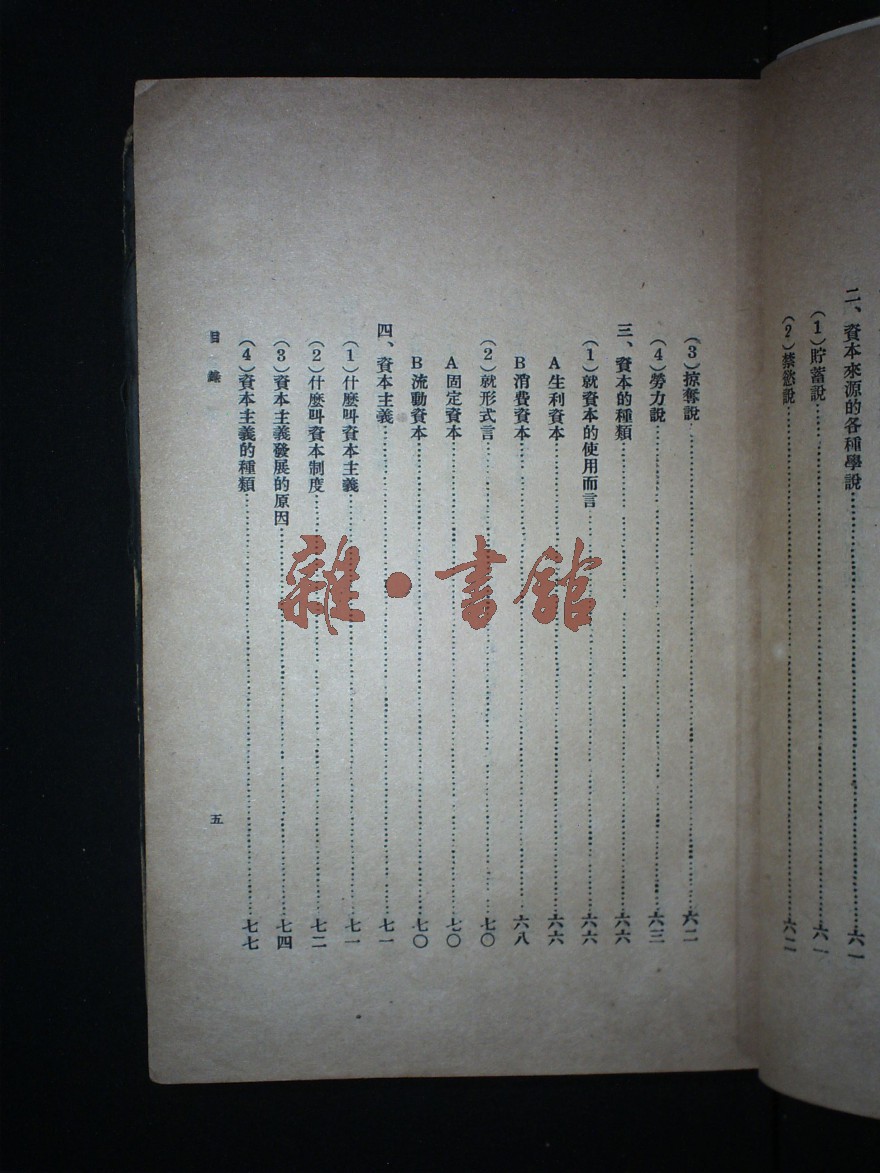 二、資本來源的各種學說……六一
(1)貯蓄說……六一
(2)禁慾說……六二
(3)掠奪說……六二
(4)勞力說……六三
三、資本的種類……六六
(1)就資本的使用而言……六六
A生利資本……六六
B消費資本……六八
(2)就形式言……七〇
A固定資本……七〇
B流動資本……七〇
四、資本主義……七一
(1)什麼叫資本主義……七一
(2)什麼叫資本制度……七二
(3)資本主義發展的原因……七四
(4)資本主義的種類……七七
目錄
五
雜·書館